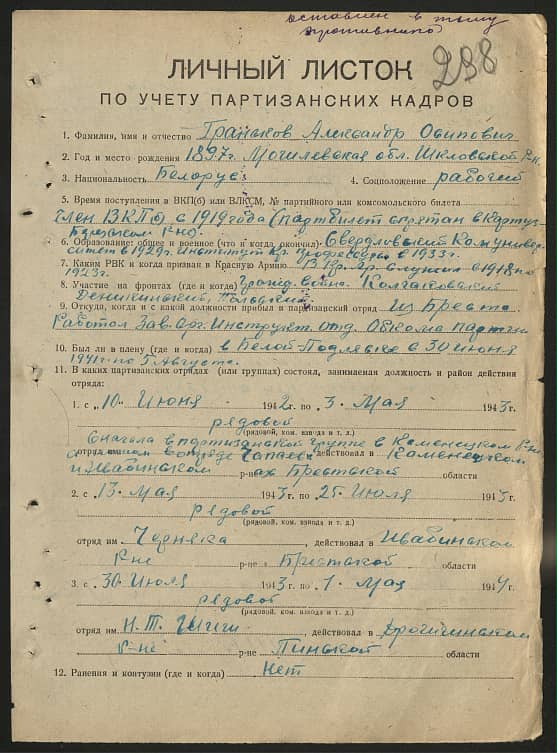 оставлен в тылу
противника
298
ЛИЧНЫЙ ЛИСТОК
ПО УЧЕТУ ПАРТИЗАНСКИХ КАДРОВ
1. Фамилия, имя и отчество Граньков Александр Осипович
2. Год и место рождения 1897г. Могилевская обл. Шкловский р-н.
3. Национальность Белорус 4. Соцположение рабочий
5. Время поступления в ВКП(б) или ВЛКСМ, № партийного или комсомольского билета
член ВКП(б) с 1919 года (партбилет спрятан в Картуз-
Березском р-не).
6. Образование: общее и военное (что и когда окончил) Свердловский Комунивер-
ситет в 1929г. Институт кр. профессуры в 1933г.
7. Каким РВК и когда призван в Красную Армию в 1918 по
1923г.
8. Участие на фронтах (где и когда) Гражд. война. Колчаковский
Деникинский, Польский
9. Откуда, когда и с какой должности прибыл в партизанский отряд из Бреста
Работал Зав. Орг. Инструкт. отд. Обкома партии
10. Был ли в плену (где и когда) в Белой-Подляске с 30 июня
1941г. по 5 Августа.
11. В каких партизанских отрядах (или группах) состоял, занимаемая должность и район действия
отряда:
1. с „10" Июня 1942 г. по „3" Мая 1943 г.
рядовой
(рядовой, ком. взвода и т. д.)
Сначала в партизанской группе в Каменецком р-не,
отряд им Чапаева действовал в Каменецком
и Ивацевичском р-нах Брестской области
2. с „13" Мая 1943 г. по „25" Июля 1943 г.
рядовой
(рядовой, ком. взвода и т. д.)
отряд им Черняка, действовал в
р-не р-не Брестской области
3. с „30" Июля 1943 г. по „1" Мая 1944 г.
рядовой
(рядовой, ком. взвода и т. д.)
отряд им Н. Т. Шиша действовал в Дрогичинском
р-не р-не Пинской области
12. Ранения и контузии (где и когда) нет